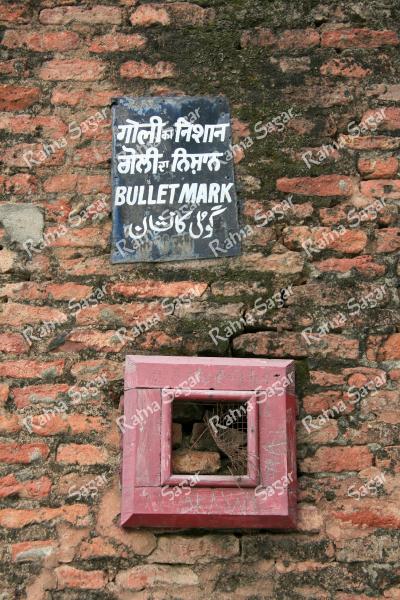 गोली का निशान
ਗੋਲੀ ਦਾ ਨਿਸ਼ਾਨ
BULLET MARK
گولی کا نشان
Rahna Sagar